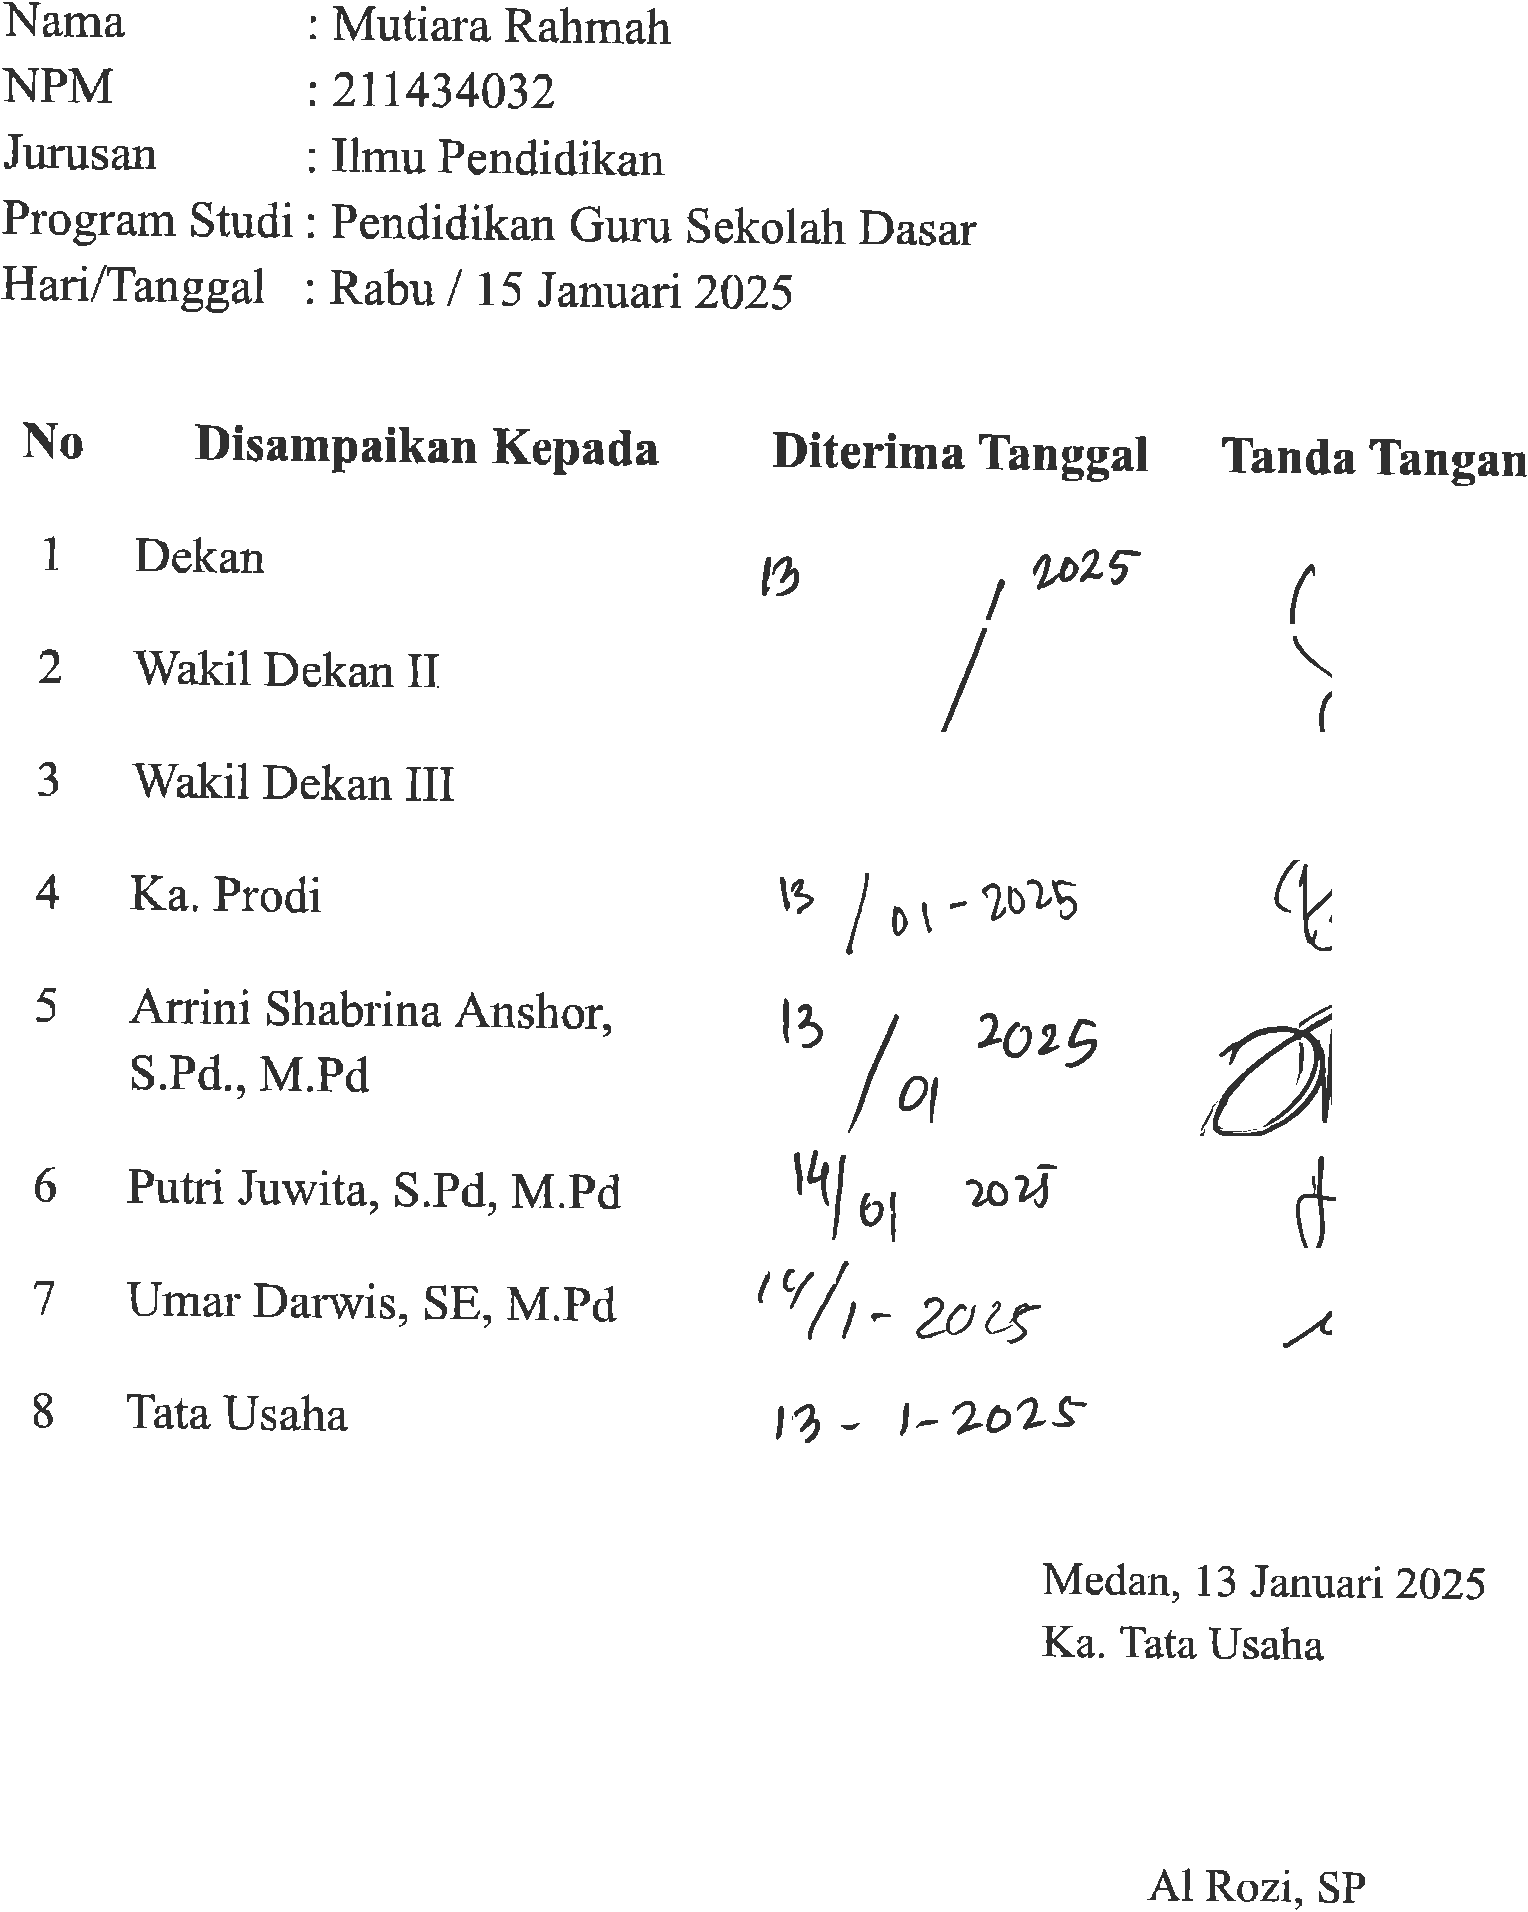 Nama : Mutiara Rahmah
NPM : 211434032
Jurusan : Ilmu Pendidikan
Program Studi : Pendidikan Guru Sekolah Dasar
Hari/Tanggal : Rabu / 15 Januari 2025
No Disampaikan Kepada Diterima Tanggal Tanda Tangan
1 Dekan 13 / 2025
2 Wakil Dekan II
3 Wakil Dekan III
4 Ka. Prodi 13 / 01 - 2025
5 Arrini Shabrina Anshor, 13 / 01 2025
S.Pd., M.Pd
6 Putri Juwita, S.Pd, M.Pd 14/01 2025
7 Umar Darwis, SE, M.Pd 14/1 - 2025
8 Tata Usaha 13 - 1 - 2025
Medan, 13 Januari 2025
Ka. Tata Usaha
Al Rozi, SP